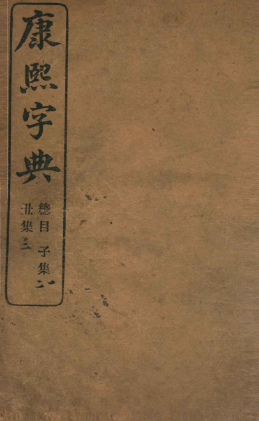 康熙字典
總目 子集一二
丑集三